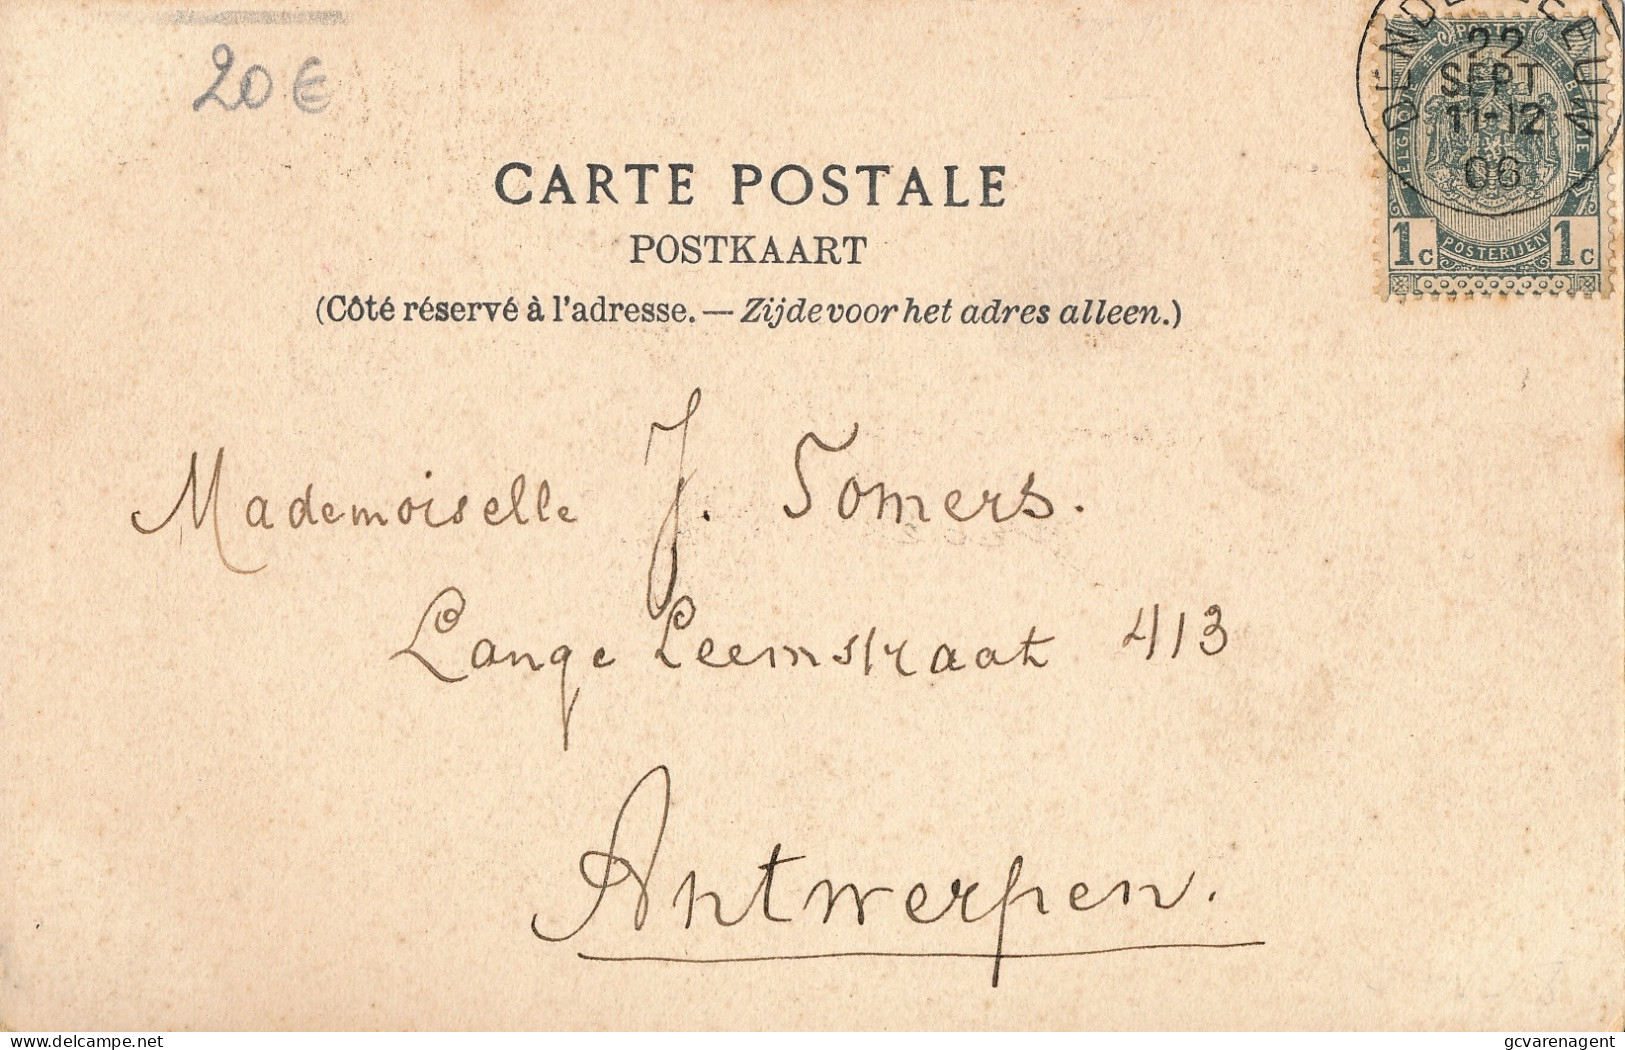 20€
DENDERLEEUW
22
SEPT
11-12
06
BELGIQUE
1c POSTERIJEN 1c
CARTE POSTALE
POSTKAART
(Côté réservé à l'adresse. — Zijde voor het adres alleen.)
Mademoiselle J. Somers.
Lange Leemstraat 413
Antwerpen.
delcampe.net
gcvarenagent